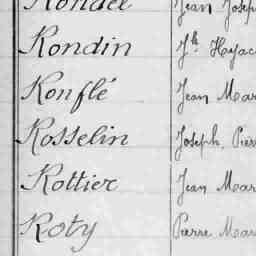 Rondel Jean Josep
Rondin Jh Hyac
Ronflé Jean Mar
Rosselin Joseph Pier
Rottier Jean Mar
Roty Pierre Mar